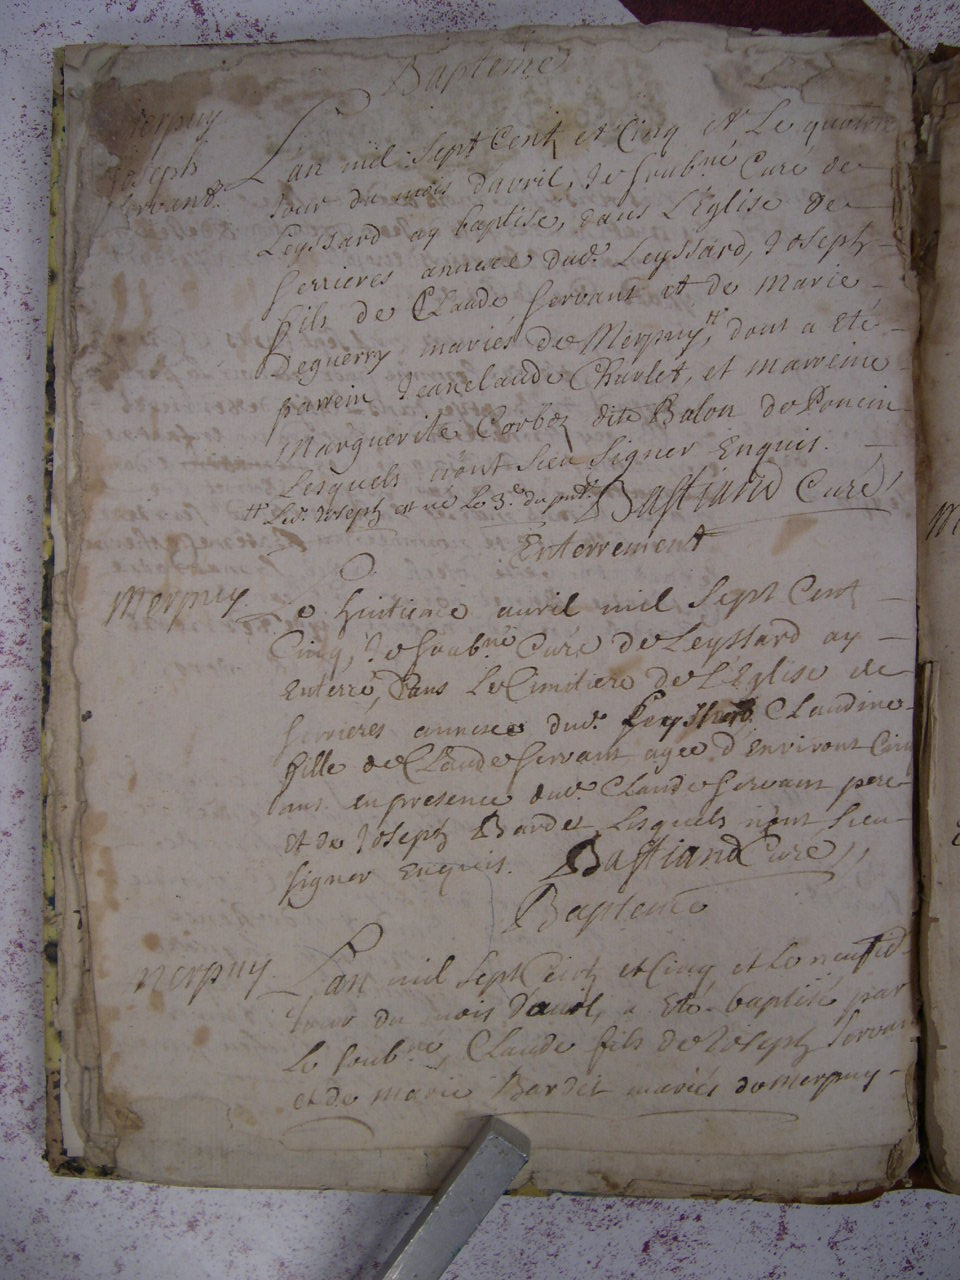 Bapteme
Merpuy
Joseph
Servant.
L'an mil sept Cent et Cinq et Le quatrie
Jour du mois d'avril, Je soub.né Curé de
Leyssard ay baptisé, dans L'Eglise de
Serrieres annexe dud. Leyssard, Joseph
fils de Claude Servant et de Marie
Deguerry mariés de Merpuy, dont a eté
parrein Jeanclaude Charlet, et marreine
Marguerite Corboz dite Balon de Poncin
Lesquels n'ont sceu signer Enquis.
Led. Joseph est né le 3.e du pnt Bastiand Curé
Enterrement
Merpuy. Le huitieme avril mil Sept Cent
Cinq, Je soub.né Curé de Leyssard ay
Enterré, dans Le Cimitiere de L'Eglise de
Serrieres annexe dud. Leyssard Claudine
fille de Claude Servant agée d'Environt Cinq
ans en presence dud. Claude Servant pere
et de Joseph Bardet Lesquels n'ont sceu
signer Enquis. Bastiand Curé
Bapteme
Merpuy L'an mil Sept Cent et Cinq et Le neufie
Jour du mois d'avril, a Eté baptisé par
Le soub.né, Claude fils de Joseph Servan
et de Marie Bardet mariés de Merpuy